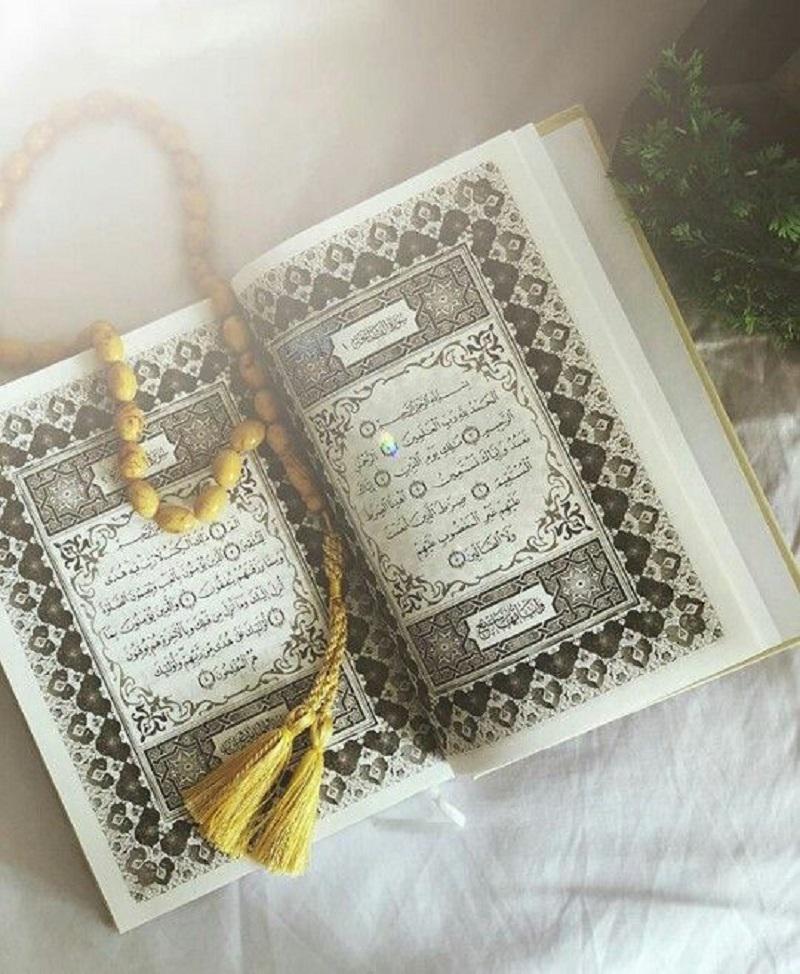 سُورَةُ الفَاتِحَةِ ١
بِسْمِ اللَّهِ الرَّحْمَٰنِ الرَّحِيمِ ١
الْحَمْدُ لِلَّهِ رَبِّ الْعَالَمِينَ ٢ الرَّحْمَٰنِ
الرَّحِيمِ ٣ مَالِكِ يَوْمِ الدِّينِ ٤ إِيَّاكَ
نَعْبُدُ وَإِيَّاكَ نَسْتَعِينُ ٥ اهْدِنَا الصِّرَاطَ
الْمُسْتَقِيمَ ٦ صِرَاطَ الَّذِينَ أَنْعَمْتَ
عَلَيْهِمْ غَيْرِ الْمَغْضُوبِ عَلَيْهِمْ
وَلَا الضَّالِّينَ ٧
سُورَةُ
الرَّحِيمِ
الم ١ ذَٰلِكَ الْكِتَابُ لَا رَيْبَ فِيهِ هُدًى
لِلْمُتَّقِينَ ٢ الَّذِينَ يُؤْمِنُونَ بِالْغَيْبِ وَيُقِيمُونَ الصَّلَاةَ
وَمِمَّا رَزَقْنَاهُمْ يُنْفِقُونَ ٣ وَالَّذِينَ يُؤْمِنُونَ بِمَا
أُنْزِلَ إِلَيْكَ وَمَا أُنْزِلَ مِنْ قَبْلِكَ وَبِالْآخِرَةِ هُمْ يُوقِنُونَ
٤ أُولَٰئِكَ عَلَىٰ هُدًى مِنْ رَبِّهِمْ وَأُولَٰئِكَ
هُمُ الْمُفْلِحُونَ ٥